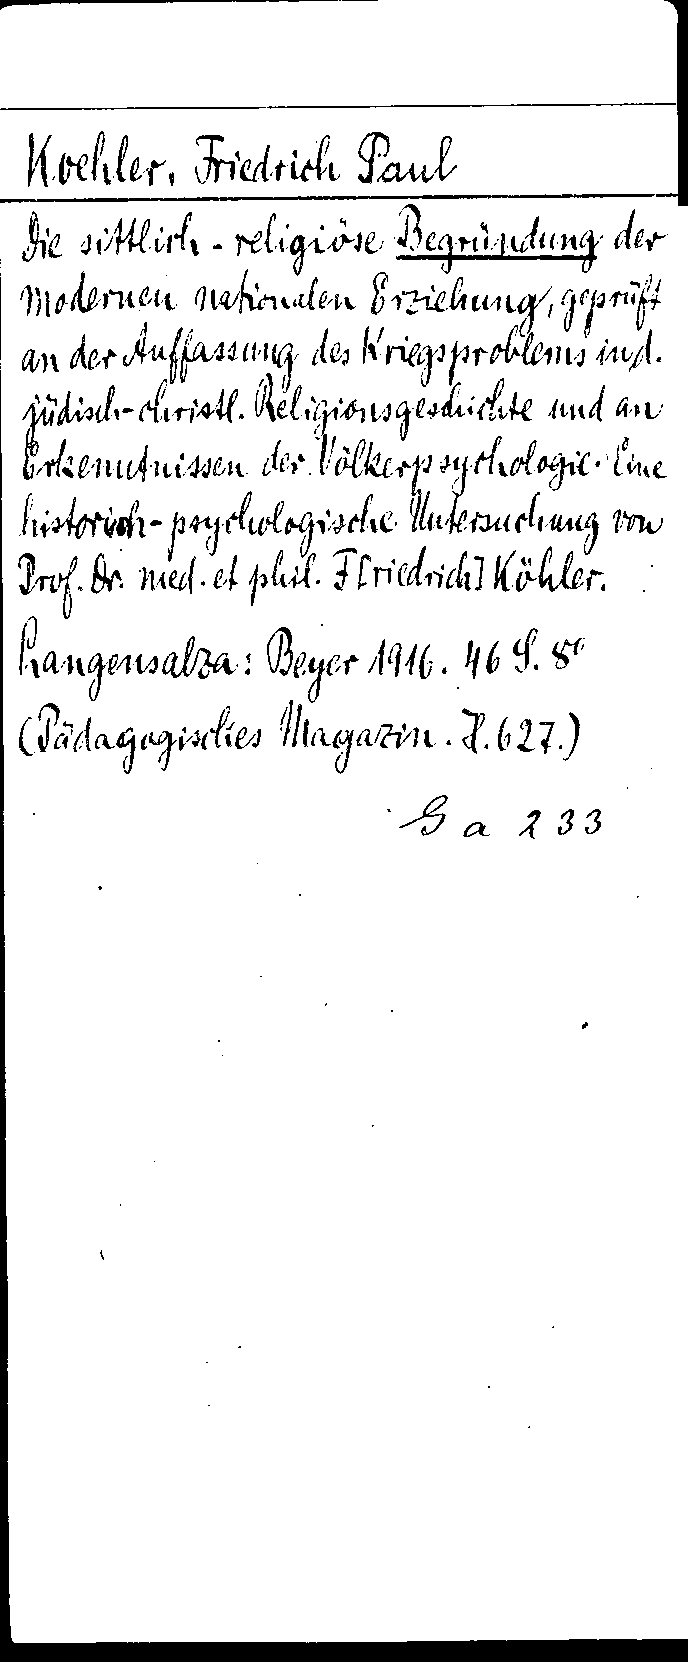 Koehler, Friedrich Paul
Die sittlich-religiöse Begründung der
modernen nationalen Erziehung, geprüft
an der Auffassung des Kriegsproblems in d.
jüdisch-christl. Religionsgeschichte und an
Erkenntnissen der Völkerpsychologie. Eine
historisch-psychologische Untersuchung von
Prof. Dr. med. et phil. F[riedrich] Köhler.
Langensalza: Beyer 1916. 46 S. 8°
(Pädagogisches Magazin. H. 627.)
G a 233